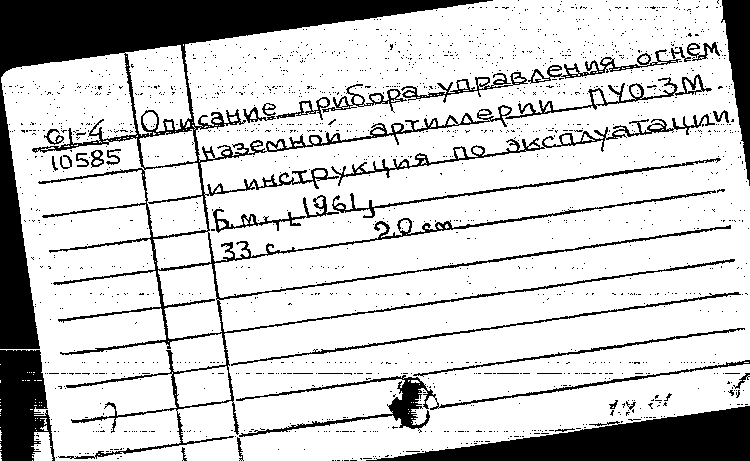 61-4 Описание прибора управления огнем
10585 наземной артиллерии ПУО-3М
и инструкция по эксплуатации.
Б.м., [1961]
33 с. 20 см